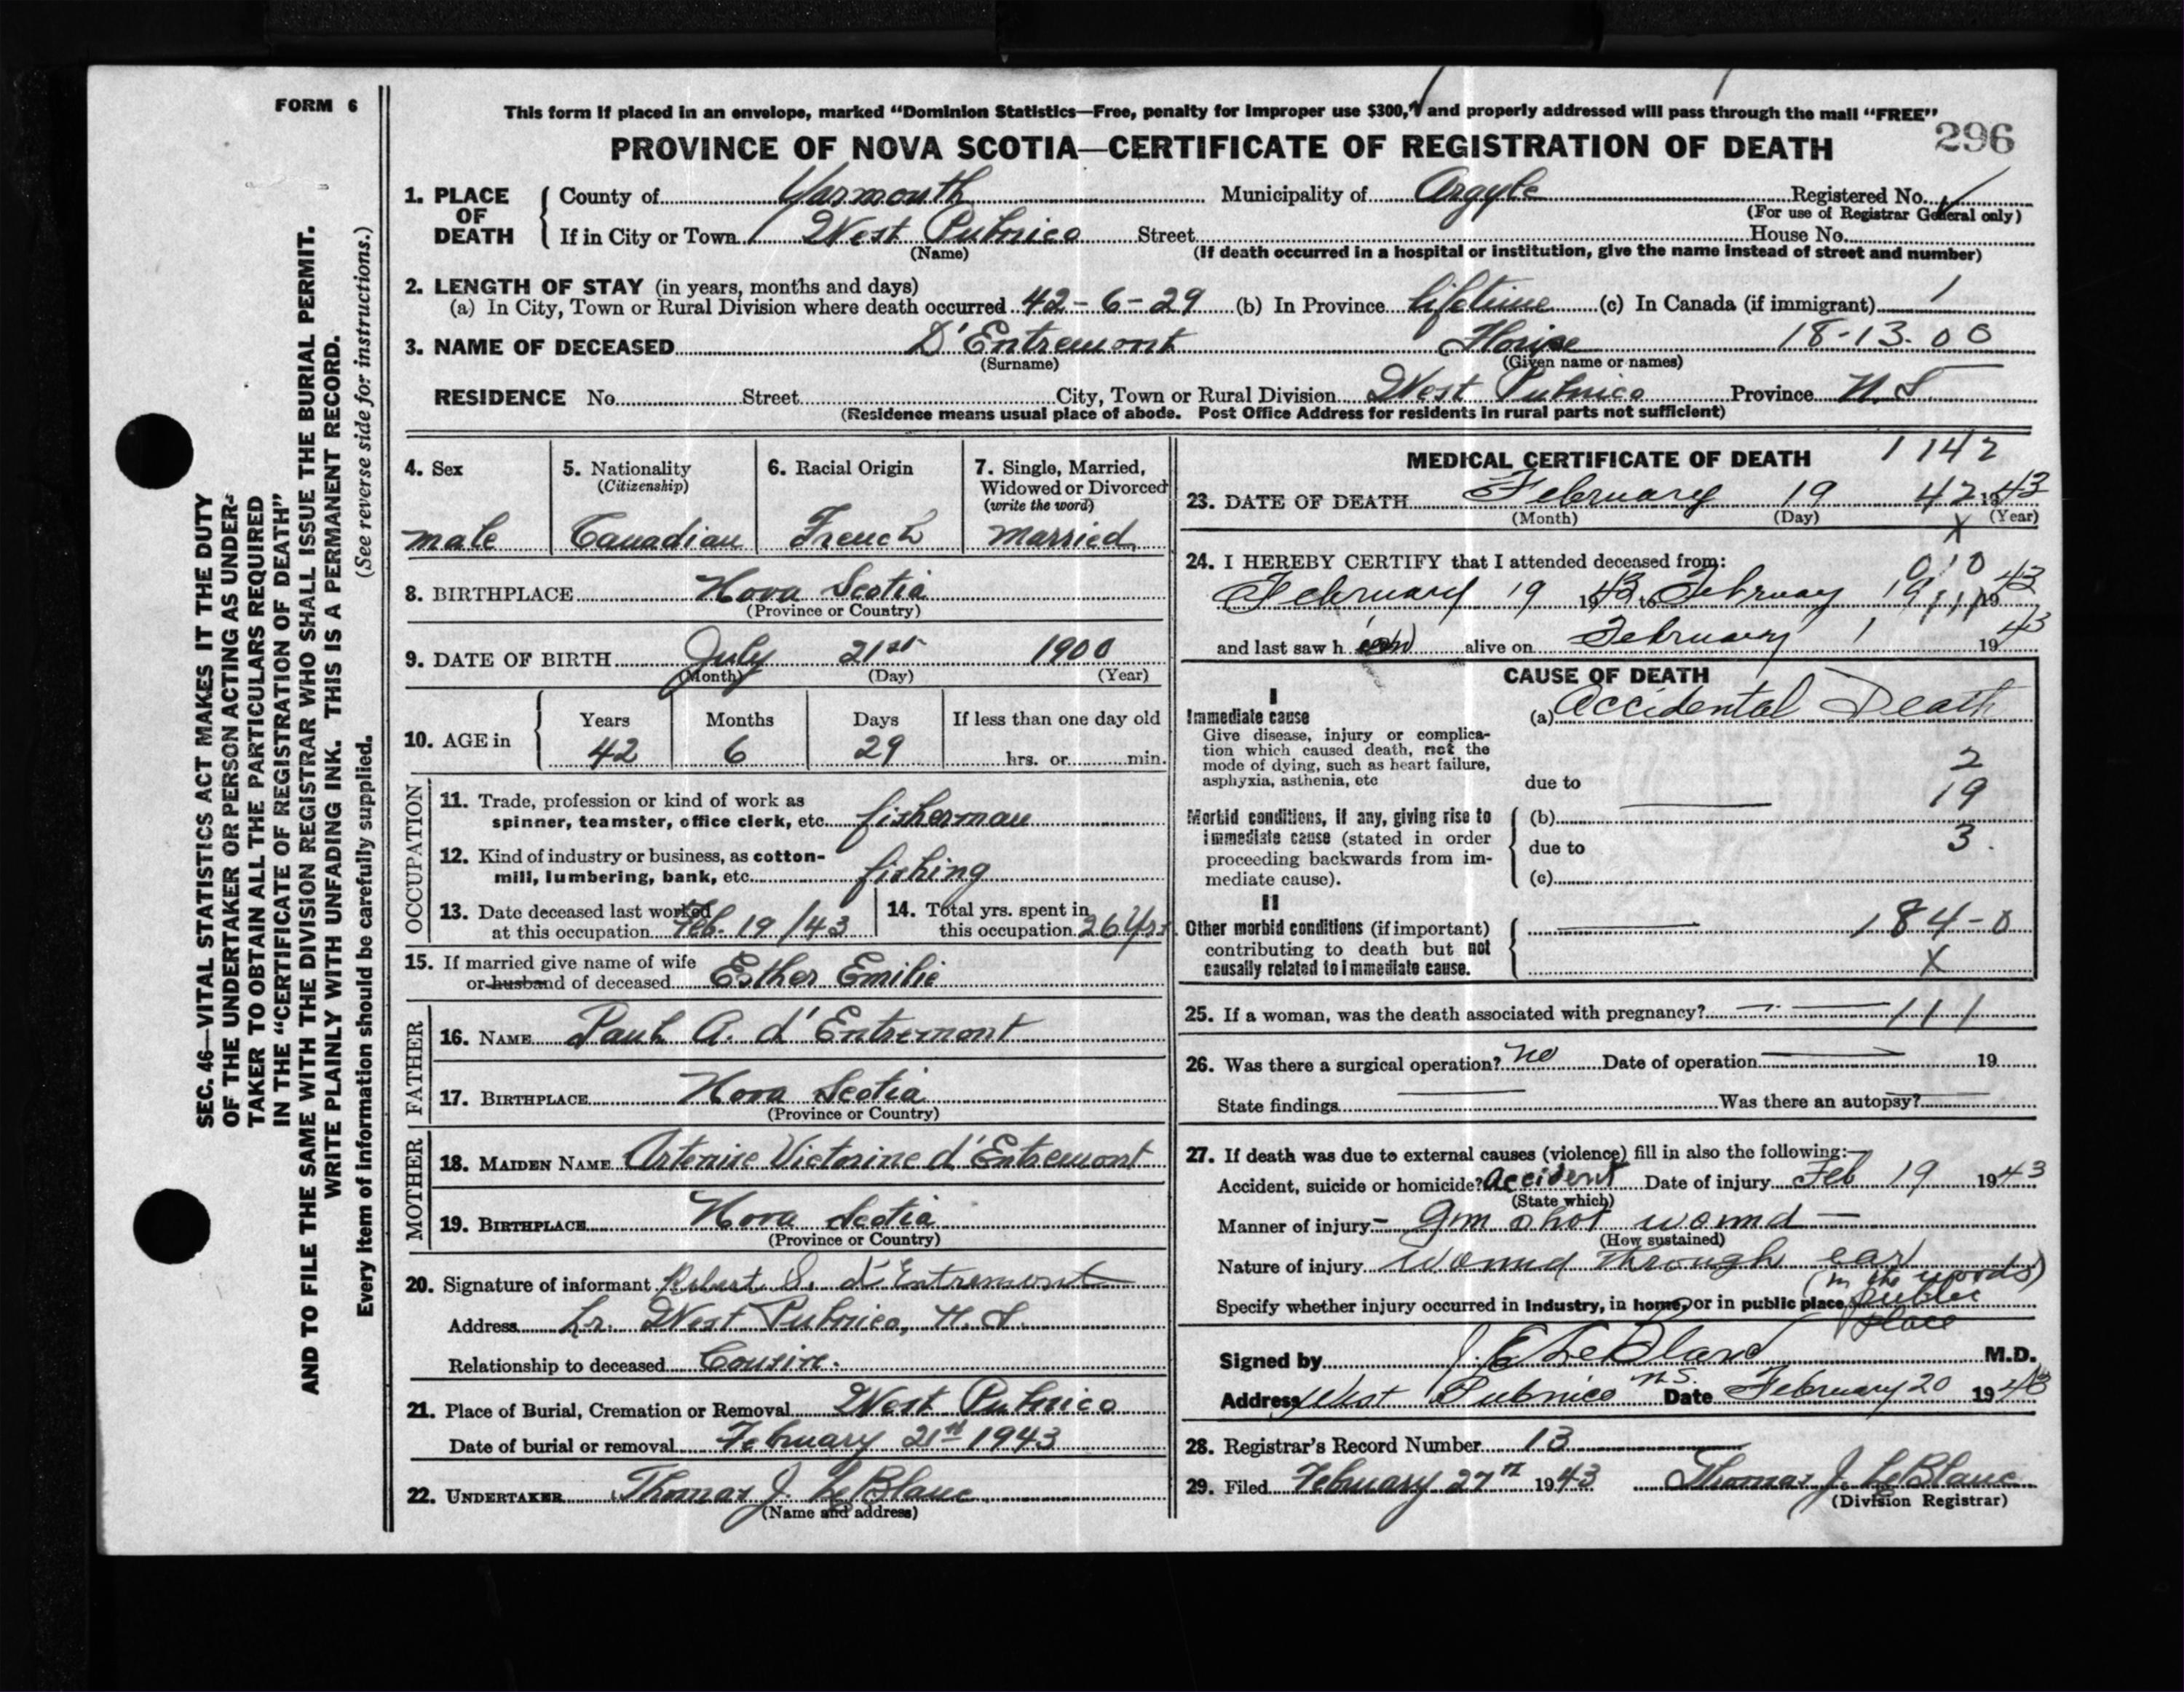 FORM 6
This form if placed in an envelope, marked "Dominion Statistics—Free, penalty for improper use $300," and properly addressed will pass through the mail "FREE"
PROVINCE OF NOVA SCOTIA—CERTIFICATE OF REGISTRATION OF DEATH
296
1. PLACE OF DEATH
County of Yarmouth Municipality of Argyle Registered No.
(For use of Registrar General only)
If in City or Town West Pubnico Street House No.
(Name) (If death occurred in a hospital or institution, give the name instead of street and number)
2. LENGTH OF STAY (in years, months and days)
(a) In City, Town or Rural Division where death occurred 42-6-29 (b) In Province lifetime (c) In Canada (if immigrant) /
3. NAME OF DECEASED D'Entremont 18-13.00
(Surname) (Given name or names)
RESIDENCE No. Street City, Town or Rural Division West Pubnico Province N.S.
(Residence means usual place of abode. Post Office Address for residents in rural parts not sufficient)
4. Sex
male
5. Nationality
(Citizenship)
Canadian
6. Racial Origin
French
7. Single, Married, Widowed or Divorced
(write the word)
married
8. BIRTHPLACE Nova Scotia
(Province or Country)
9. DATE OF BIRTH July 21st 1900
(Month) (Day) (Year)
10. AGE in
Years Months Days If less than one day old
42 6 29 hrs. or min.
OCCUPATION
11. Trade, profession or kind of work as
spinner, teamster, office clerk, etc. fisherman
12. Kind of industry or business, as cotton-
mill, lumbering, bank, etc. fishing
13. Date deceased last worked
at this occupation Feb. 19/43
14. Total yrs. spent in
this occupation 26 yrs.
15. If married give name of wife
or husband of deceased Esther Emilie
FATHER
16. NAME Paul A. d'Entremont
17. BIRTHPLACE Nova Scotia
(Province or Country)
MOTHER
18. MAIDEN NAME Artenise Victorine d'Entremont
19. BIRTHPLACE Nova Scotia
(Province or Country)
20. Signature of informant Robert S. d'Entremont
Address Lr. West Pubnico, N.S.
Relationship to deceased Cousin.
21. Place of Burial, Cremation or Removal West Pubnico
Date of burial or removal February 21st 1943
22. UNDERTAKER Thomas J. LeBlanc
(Name and address)
MEDICAL CERTIFICATE OF DEATH
1142
23. DATE OF DEATH February 19 42 1943
(Month) (Day) (Year)
X
24. I HEREBY CERTIFY that I attended deceased from:
010
February 19 1943 to February 19 1943
111
and last saw h alive on February 1 1943
CAUSE OF DEATH
I
Immediate cause
Give disease, injury or complica-
tion which caused death, not the
mode of dying, such as heart failure,
asphyxia, asthenia, etc
(a) Accidental Death
due to
2
19
3.
Morbid conditions, if any, giving rise to
immediate cause (stated in order
proceeding backwards from im-
mediate cause).
(b)
due to
(c)
II
Other morbid conditions (if important)
contributing to death but not
causally related to immediate cause.
184-0
X
25. If a woman, was the death associated with pregnancy? 111
26. Was there a surgical operation? no Date of operation 19
State findings Was there an autopsy?
27. If death was due to external causes (violence) fill in also the following:—
Accident, suicide or homicide? Accident Date of injury Feb 19 1943
(State which)
Manner of injury— gun shot wound —
(How sustained)
Nature of injury wound through ear
(in the woods)
Specify whether injury occurred in industry, in home, or in public place public
place
Signed by J. E. LeBlanc M.D.
Address West Pubnico N.S. Date February 20 1943
28. Registrar's Record Number 13
29. Filed February 27th 1943 Thomas J. LeBlanc
(Division Registrar)
SEC. 46—VITAL STATISTICS ACT MAKES IT THE DUTY
OF THE UNDERTAKER OR PERSON ACTING AS UNDER-
TAKER TO OBTAIN ALL THE PARTICULARS REQUIRED
IN THE "CERTIFICATE OF REGISTRATION OF DEATH"
AND TO FILE THE SAME WITH THE DIVISION REGISTRAR WHO SHALL ISSUE THE BURIAL PERMIT.
WRITE PLAINLY WITH UNFADING INK. THIS IS A PERMANENT RECORD.
Every item of information should be carefully supplied. (See reverse side for instructions.)